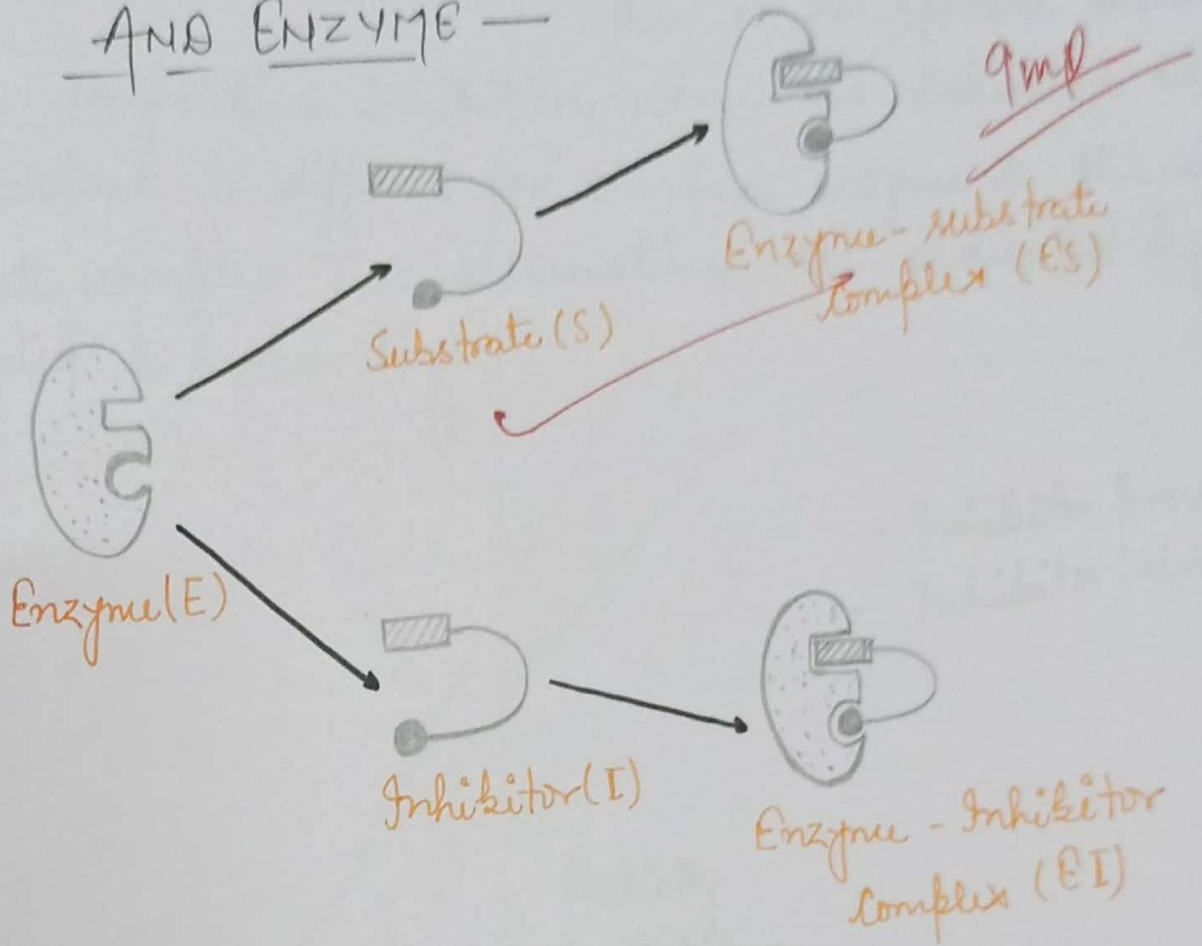 AND ENZYME —
Imp
Enzyme - substrate
Complex (ES)
Substrate (S)
Enzyme (E)
Inhibitor (I)
Enzyme - Inhibitor
Complex (EI)